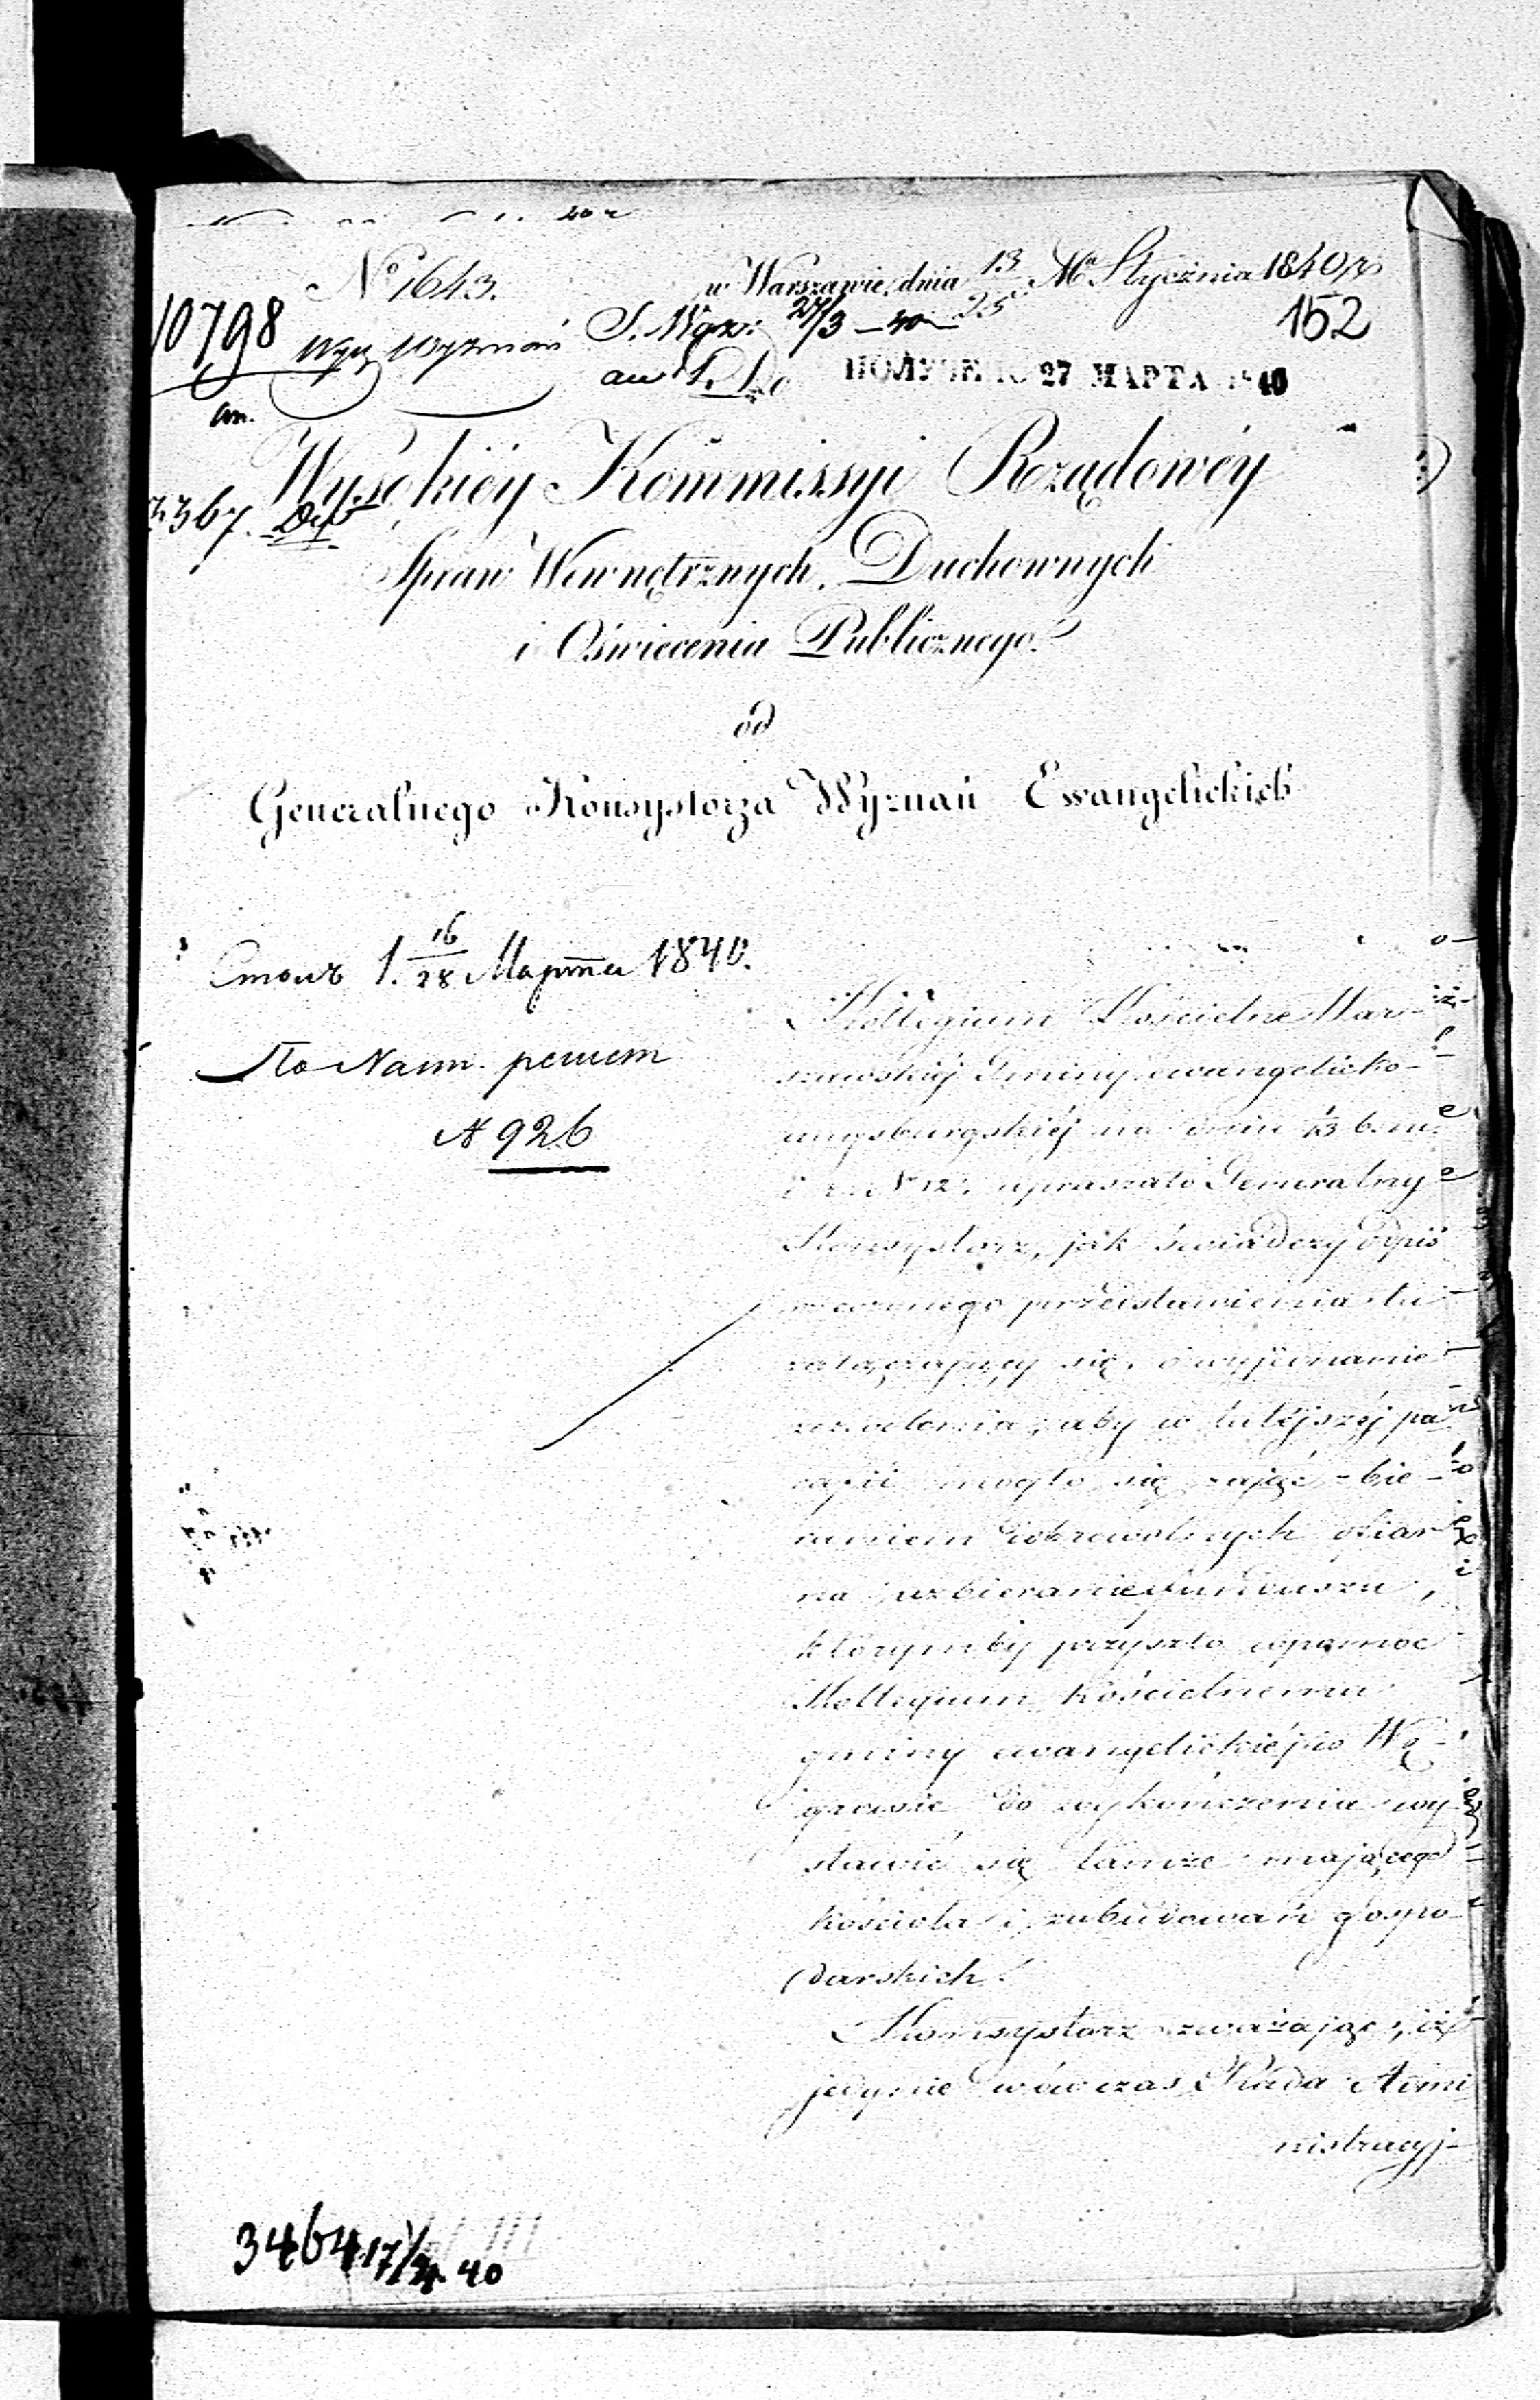 No 1643. w Warszawie, dnia 13/25 Ma Stycznia 1840 r.
10798 Wyz. Wyznań 27/3 – 40 152
ПОЛУЧЕНО 27 МАРТА 1840
Wysokiéy Kommissyi Rządowéy
3367.
Spraw Wewnętrznych, Duchownych
i Oświecenia Publicznego.
od
Generalnego Konsystorza Wyznań Ewangelickich
Столъ 1. 16/28 Марта 1840.
№ 926
Kollegium Kościelne War-
szawskiéj Gminy ewangelicko-
augsburgskiéj na dniu 1/13 b. m.
i r. N 12. upraszało Generalny
Konsystorz, jak świadczy odpis
wczesnego przedstawienia tu
załączający się, o wyjednanie
zezwolenia, aby w tutéjszéj pa-
rafii mogło się zająć zbie-
raniem dobrowolnych ofiar
na uzbieranie funduszu,
którymby przyszło w pomoc
Kollegium kościelnemu
gminy ewangelickiéj w Wę-
growie do wykończenia wy-
stawić się tamże mającego
kościoła i zabudowań gospo-
darskich.
Konsystorz zważając, iż
jedynie wówczas Rada Admi-
nistracyj-
3464 17/4 40